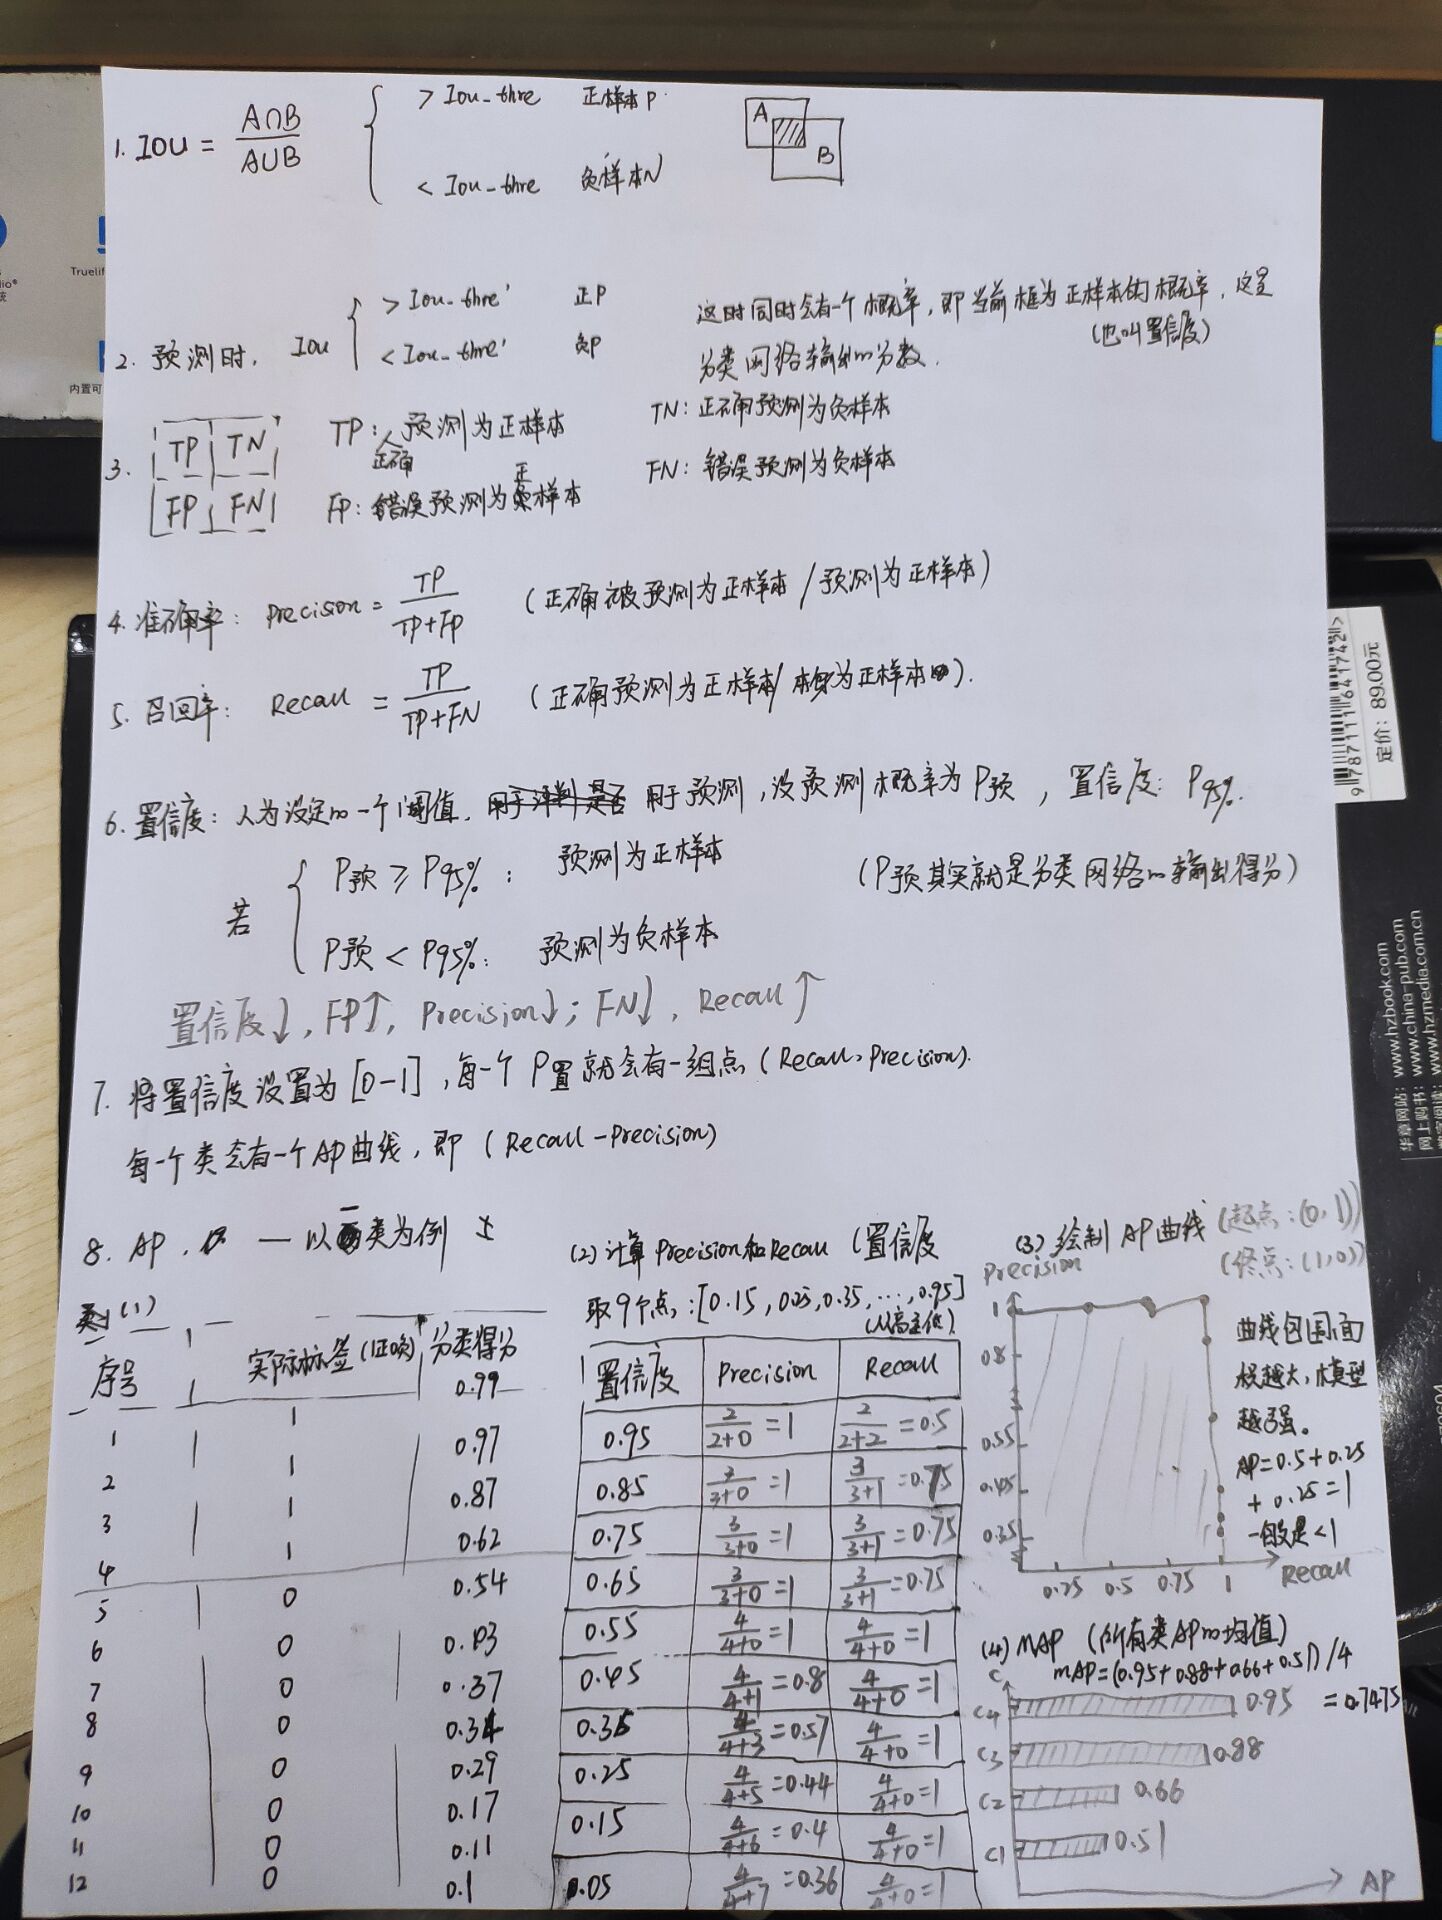 1. IOU = A∩B / A∪B
> Iou-thre 正样本P
< Iou-thre 负样本N
A
B
2. 预测时, Iou
> Iou-thre' 正P
< Iou-thre' 负P
这时同时会有一个概率,即当前框为正样本的概率,这是
(也叫置信度)
分类网络输出的分数.
3.
TP TN
FP FN
TP: 正确预测为正样本
FP: 错误预测为正样本
TN: 正确预测为负样本
FN: 错误预测为负样本
4. 准确率: Precision = TP / TP+FP (正确被预测为正样本/预测为正样本)
5. 召回率: Recall = TP / TP+FN (正确预测为正样本/本身为正样本).
6. 置信度: 人为设定的一个阈值, 用于评判是否 用于预测,设预测概率为P预, 置信度: P95%.
若
P预 ≥ P95%: 预测为正样本
P预 < P95%: 预测为负样本
(P预其实就是分类网络的输出得分)
置信度↓, FP↑, Precision↓; FN↓, Recall↑
7. 将置信度设置为[0-1],每一个P置就会有一组点(Recall, Precision).
每一个类会有一个AP曲线,即(Recall-Precision)
8. AP, — 以一类为例
类1 (1)
序号 实际标签(IOU) 分类得分
1 1 0.99
2 1 0.97
3 1 0.87
4 1 0.62
5 0 0.54
6 0 0.43
7 0 0.37
8 0 0.34
9 0 0.29
10 0 0.17
11 0 0.11
12 0 0.1
(2) 计算Precision和Recall (置信度
取9个点:[0.15, 0.25, 0.35, ..., 0.95]
(从高至低)
置信度 Precision Recall
0.95 2/2+0 =1 2/2+2 =0.5
0.85 3/3+0 =1 3/3+1 =0.75
0.75 3/3+0 =1 3/3+1 =0.75
0.65 3/3+0 =1 3/3+1 =0.75
0.55 4/4+0 =1 4/4+0 =1
0.45 4/4+1 =0.8 4/4+0 =1
0.35 4/4+3 =0.57 4/4+0 =1
0.25 4/4+5 =0.44 4/4+0 =1
0.15 4/4+6 =0.4 4/4+0 =1
0.05 4/4+7 =0.36 4/4+0 =1
(3) 绘制AP曲线 (起点:(0,1))
(终点:(1,0))
Precision
1
0.8
0.55
0.45
0.35
0.25 0.5 0.75 1 Recall
曲线包围面
积越大,模型
越强。
AP=0.5+0.25
+0.25=1
一般是<1
(4) MAP (所有类AP的均值)
mAP=(0.95+0.88+0.66+0.51)/4
=0.7475
C
C4 0.95
C3 0.88
C2 0.66
C1 0.51
AP
Truelife
内置可
9 787111 641742 >
定价: 89.00元
华章网站: www.hzbook.com
网上购书: www.china-pub.com
www.hzmedia.com.cn